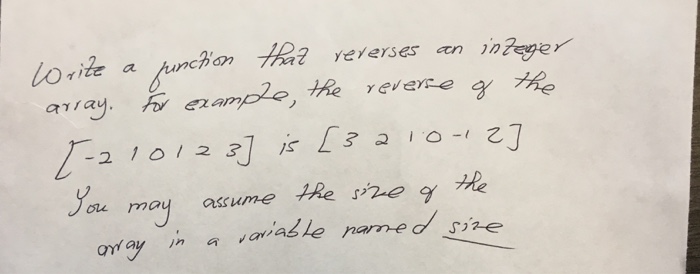 Write a function that reverses an integer
array. For example, the reverse of the
[-2 1 0 1 2 3] is [3 2 1 0 -1 2]
You may assume the size of the
array in a variable named size